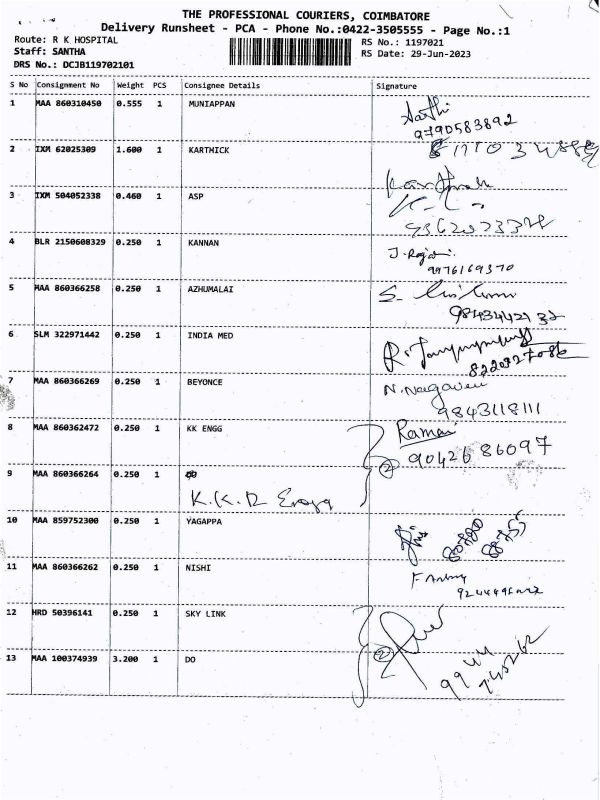 THE PROFESSIONAL COURIERS, COIMBATORE
Delivery Runsheet - PCA - Phone No.:0422-3505555 - Page No.:1
Route: R K HOSPITAL
Staff: SANTHA
DRS No.: DCJB119702101
RS No.: 1197021
RS Date: 29-Jun-2023
S No Consignment No Weight PCS Consignee Details Signature
1 MAA 860310450 0.555 1 MUNIAPPAN
9790583892
2 IXM 62025309 1.600 1 KARTHICK
3 IXM 504052338 0.460 1 ASP
4 BLR 2150608329 0.250 1 KANNAN
9976169370
5 MAA 860366258 0.250 1 AZHUMALAI
6 SLM 322971442 0.250 1 INDIA MED
7 MAA 860366269 0.250 1 BEYONCE
9843118111
8 MAA 860362472 0.250 1 KK ENGG Ramai
2 90426 86097
9 MAA 860366264 0.250 1
10 MAA 859752300 0.250 1 YAGAPPA
11 MAA 860366262 0.250 1 NISHI
12 HRD 50396141 0.250 1 SKY LINK
13 MAA 100374939 3.200 1 DO 2